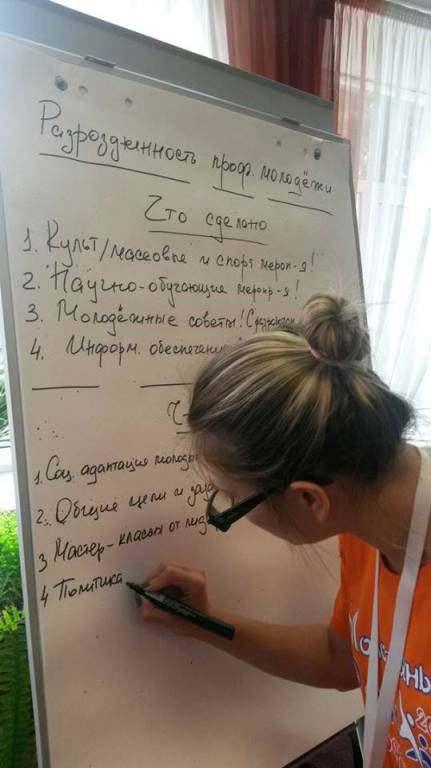 Разрозденность проф. молодёжи
Что сделано
1. Культ/массовые и спорт мероп-я!
2. Научно-обучающие меропр-я!
3. Молодёжные советы!
4. Информ. обеспечение
1. Соц. адаптация
2. Общие цели и
3 Мастер-классы от
4 Политика